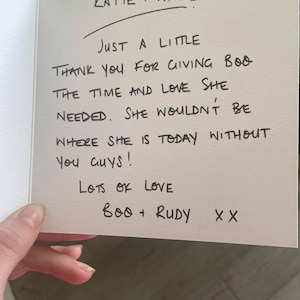 JUST A LITTLE
THANK YOU FOR GIVING BOO
THE TIME AND LOVE SHE
NEEDED. SHE WOULDN'T BE
WHERE SHE IS TODAY WITHOUT
YOU GUYS!
LOTS OF LOVE
BOO + RUDY XX